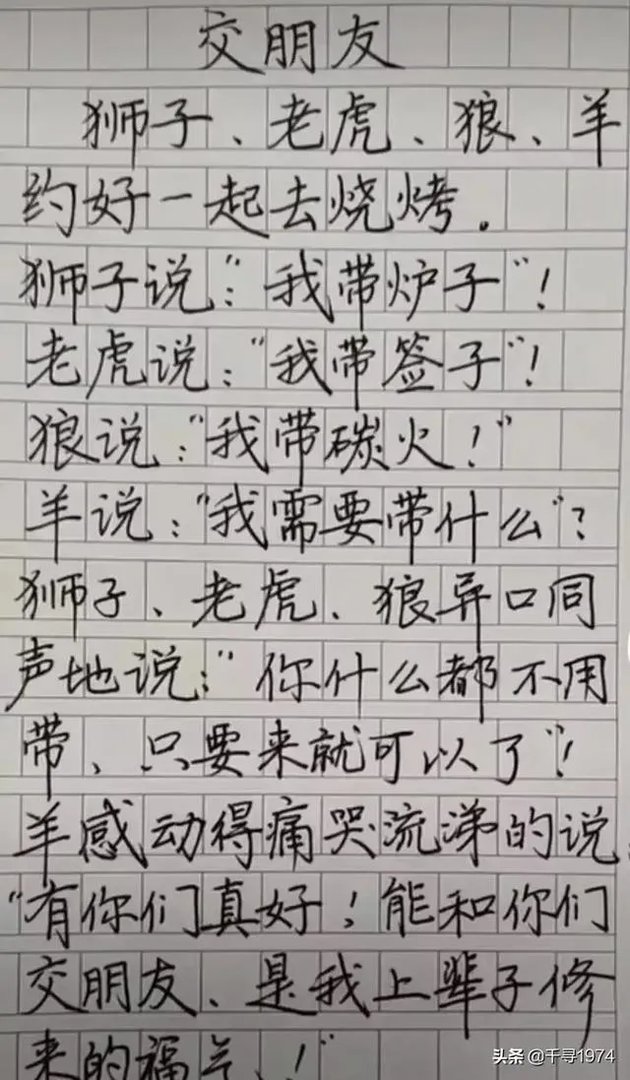 交朋友
狮子、老虎、狼、羊
约好一起去烧烤。
狮子说:“我带炉子”!
老虎说:“我带签子”!
狼说:“我带碳火!”
羊说:“我需要带什么”?
狮子、老虎、狼异口同
声地说:“你什么都不用
带、只要来就可以了”!
羊感动得痛哭流涕的说
“有你们真好!能和你们
交朋友、是我上辈子修
来的福气!”
头条 @千寻1974